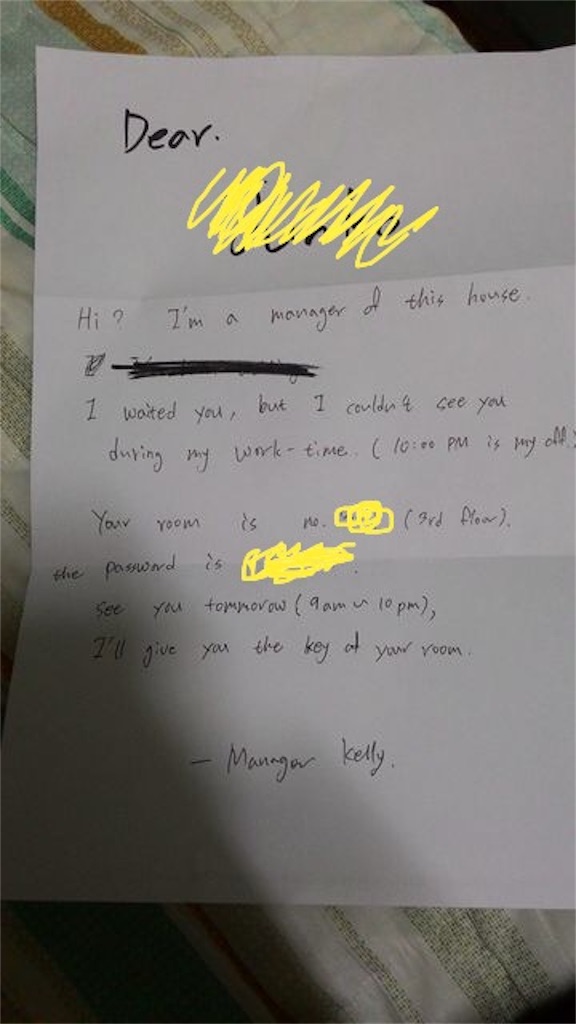 Dear.
Hi? I'm a manager of this house.
I waited you, but I couldn't see you
during my work-time. (10:00 PM is my off.)
Your room is no. (3rd floor).
the password is .
see you tommorow (9am ~ 10pm),
I'll give you the key of your room.
– Manager kelly.